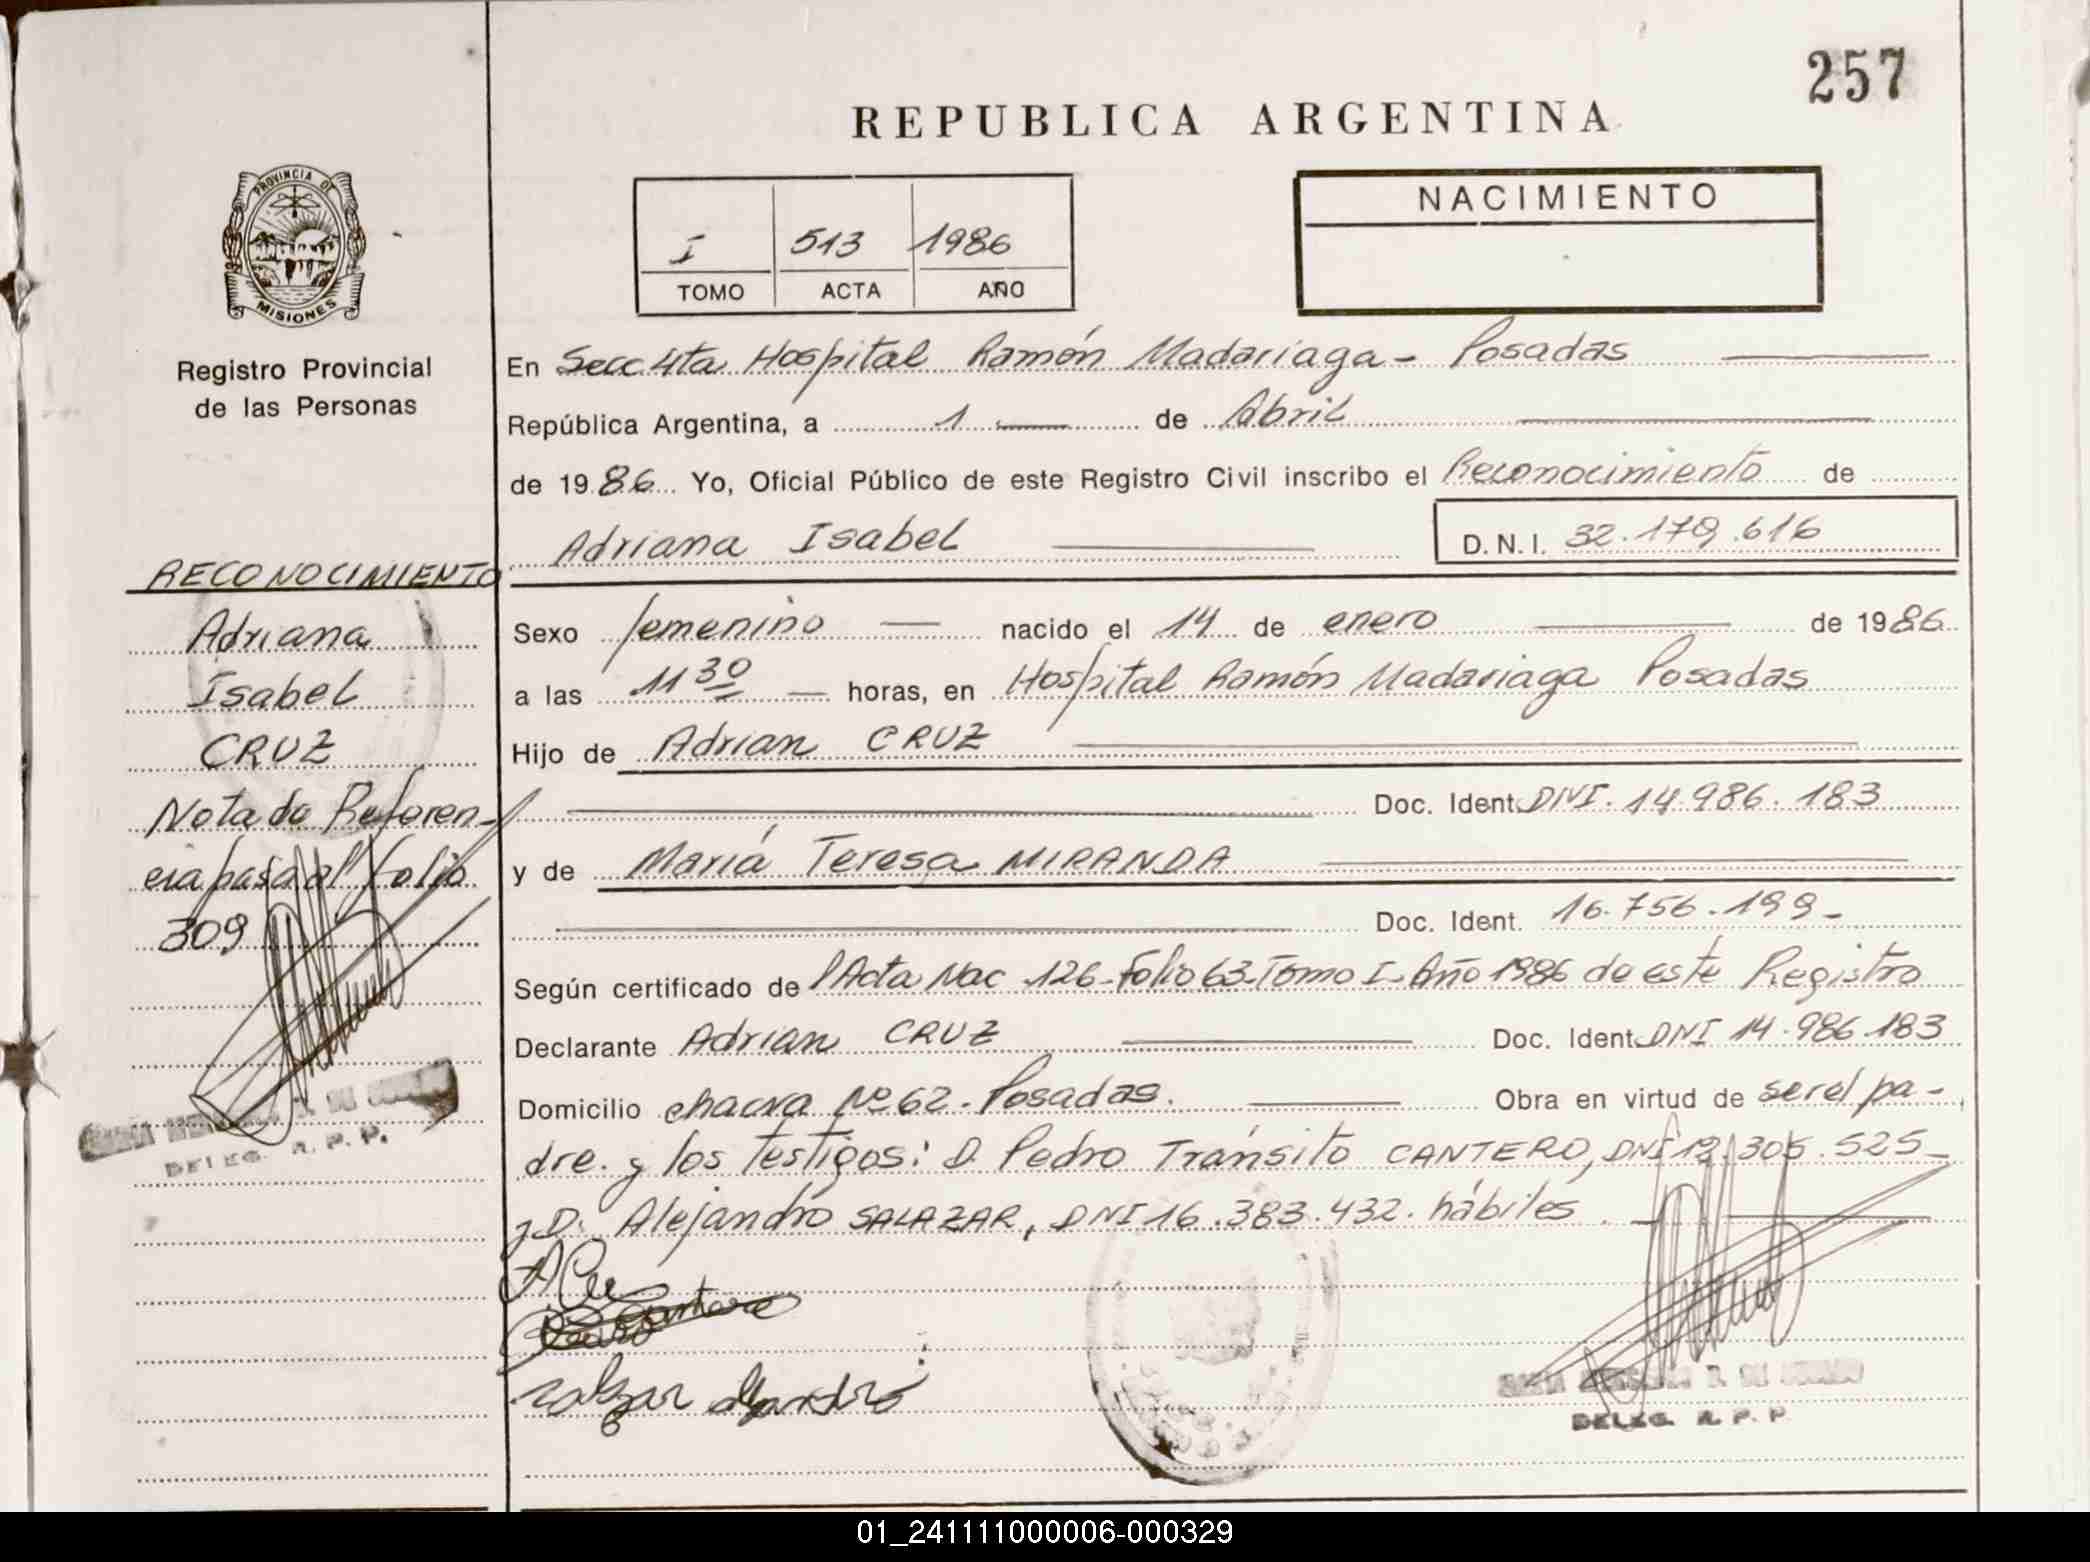 257
REPUBLICA ARGENTINA
PROVINCIA DE
MISIONES
Registro Provincial
de las Personas
I 513 1986
TOMO ACTA AÑO
NACIMIENTO
En Secc 4ta Hospital Ramón Madariaga - Posadas
República Argentina, a 1 de Abril
de 1986 Yo, Oficial Público de este Registro Civil inscribo el Reconocimiento de
Adriana Isabel
D.N.I. 32.179.616
RECONOCIMIENTO
Adriana
Isabel
CRUZ
Nota de Referen-
cia pasa al folio
309
DELEG. R.P.P.
Sexo femenino nacido el 14 de enero de 1986
a las 11 30 horas, en Hospital Ramón Madariaga Posadas
Hijo de Adrian CRUZ
Doc. Ident. DNI. 14.986.183
y de María Teresa MIRANDA
Doc. Ident. 16.756.199-
Según certificado de l'Acta Nac 126-Folio 63-Tomo I-Año 1986 de este Registro
Declarante Adrian CRUZ Doc. Ident. DNI 14.986.183
Domicilio chacra Nº 62. Posadas. Obra en virtud de ser el pa-
dre. y los testigos: D. Pedro Tránsito CANTERO, DNI 12.305.525-
y D. Alejandro SALAZAR, DNI 16.383.432. hábiles
DELEG. R.P.P.
01_241111000006-000329